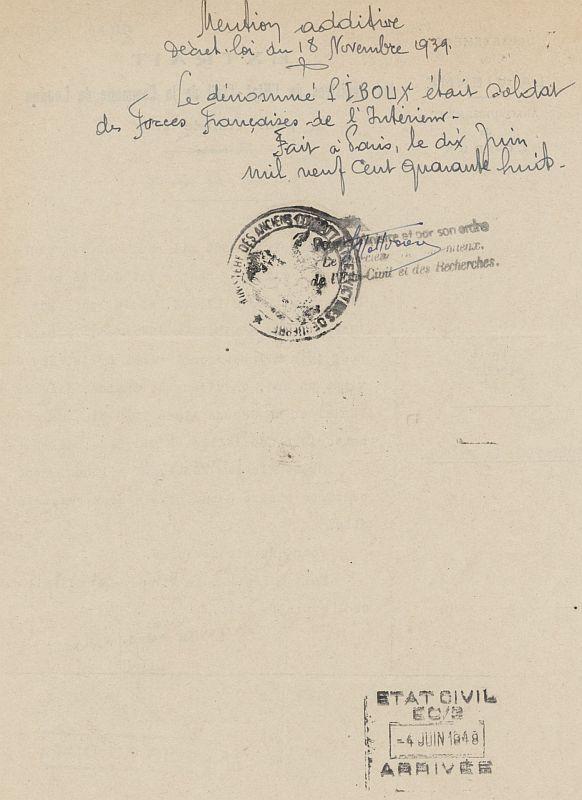 Mention additive
Décret-loi du 18 Novembre 1939.
Le dénommé LIBOUX était soldat
des Forces Françaises de l'Intérieur.
Fait à Paris, le dix Juin
mil neuf cent quarante huit.
MINISTÈRE DES ANCIENS COMBATTANTS ET VICTIMES DE GUERRE
et par son ordre
Le
de l'Etat-Civil et des Recherches.
ETAT CIVIL
EC/3
-4 JUIN 1948
ARRIVÉE